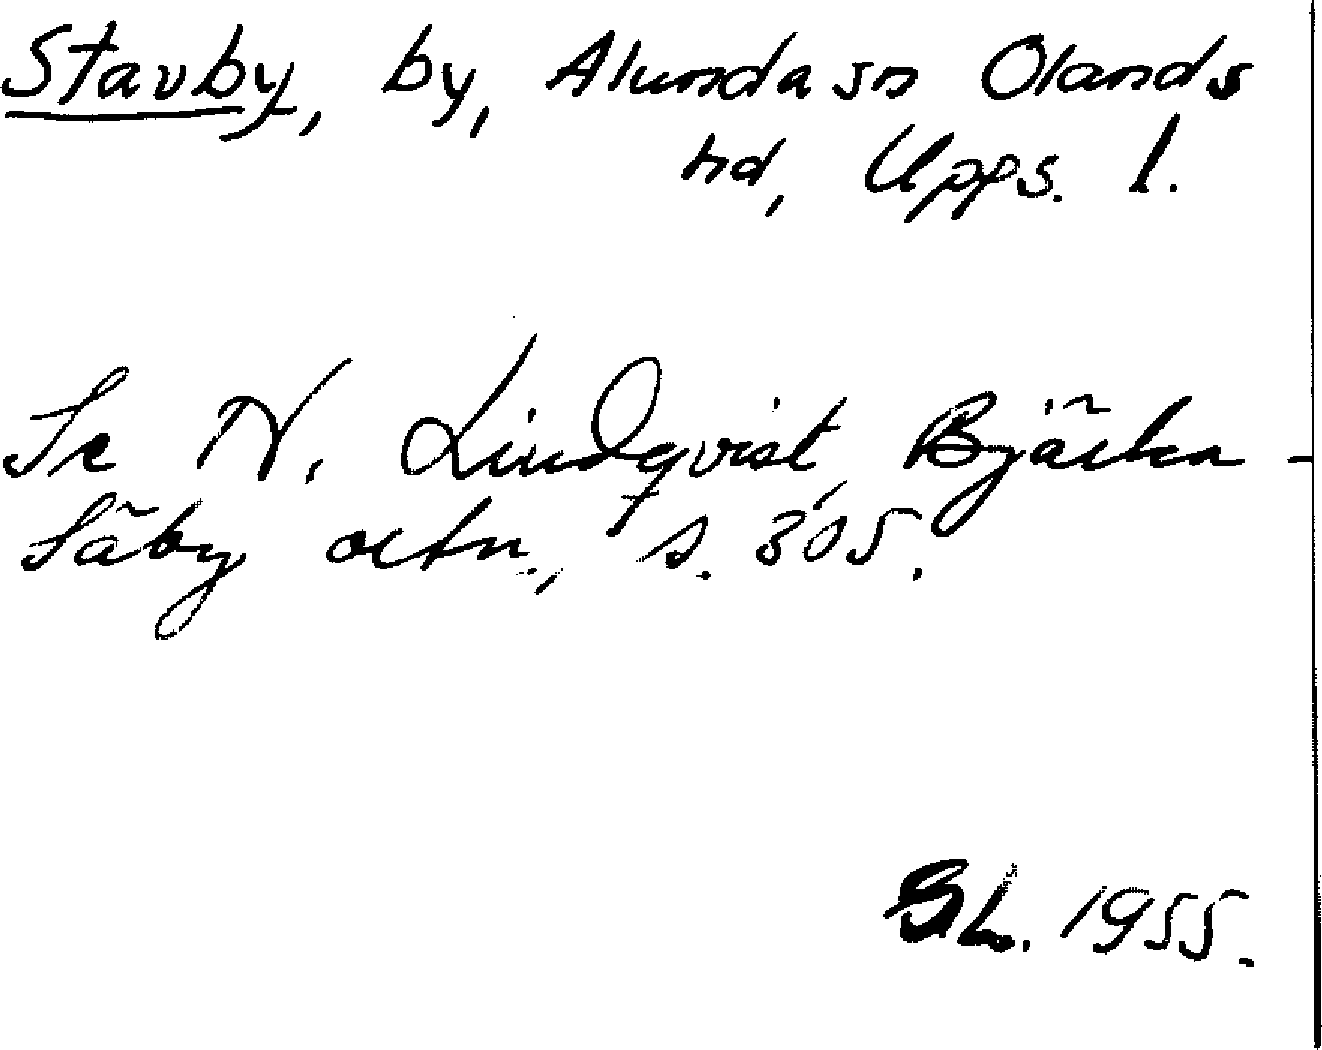 Stavby, by, Alunda sn Olands
hd, Upps. l.
Se N. Lindqvist, Bjärka-
Säby ortn., s. 305.
1955.